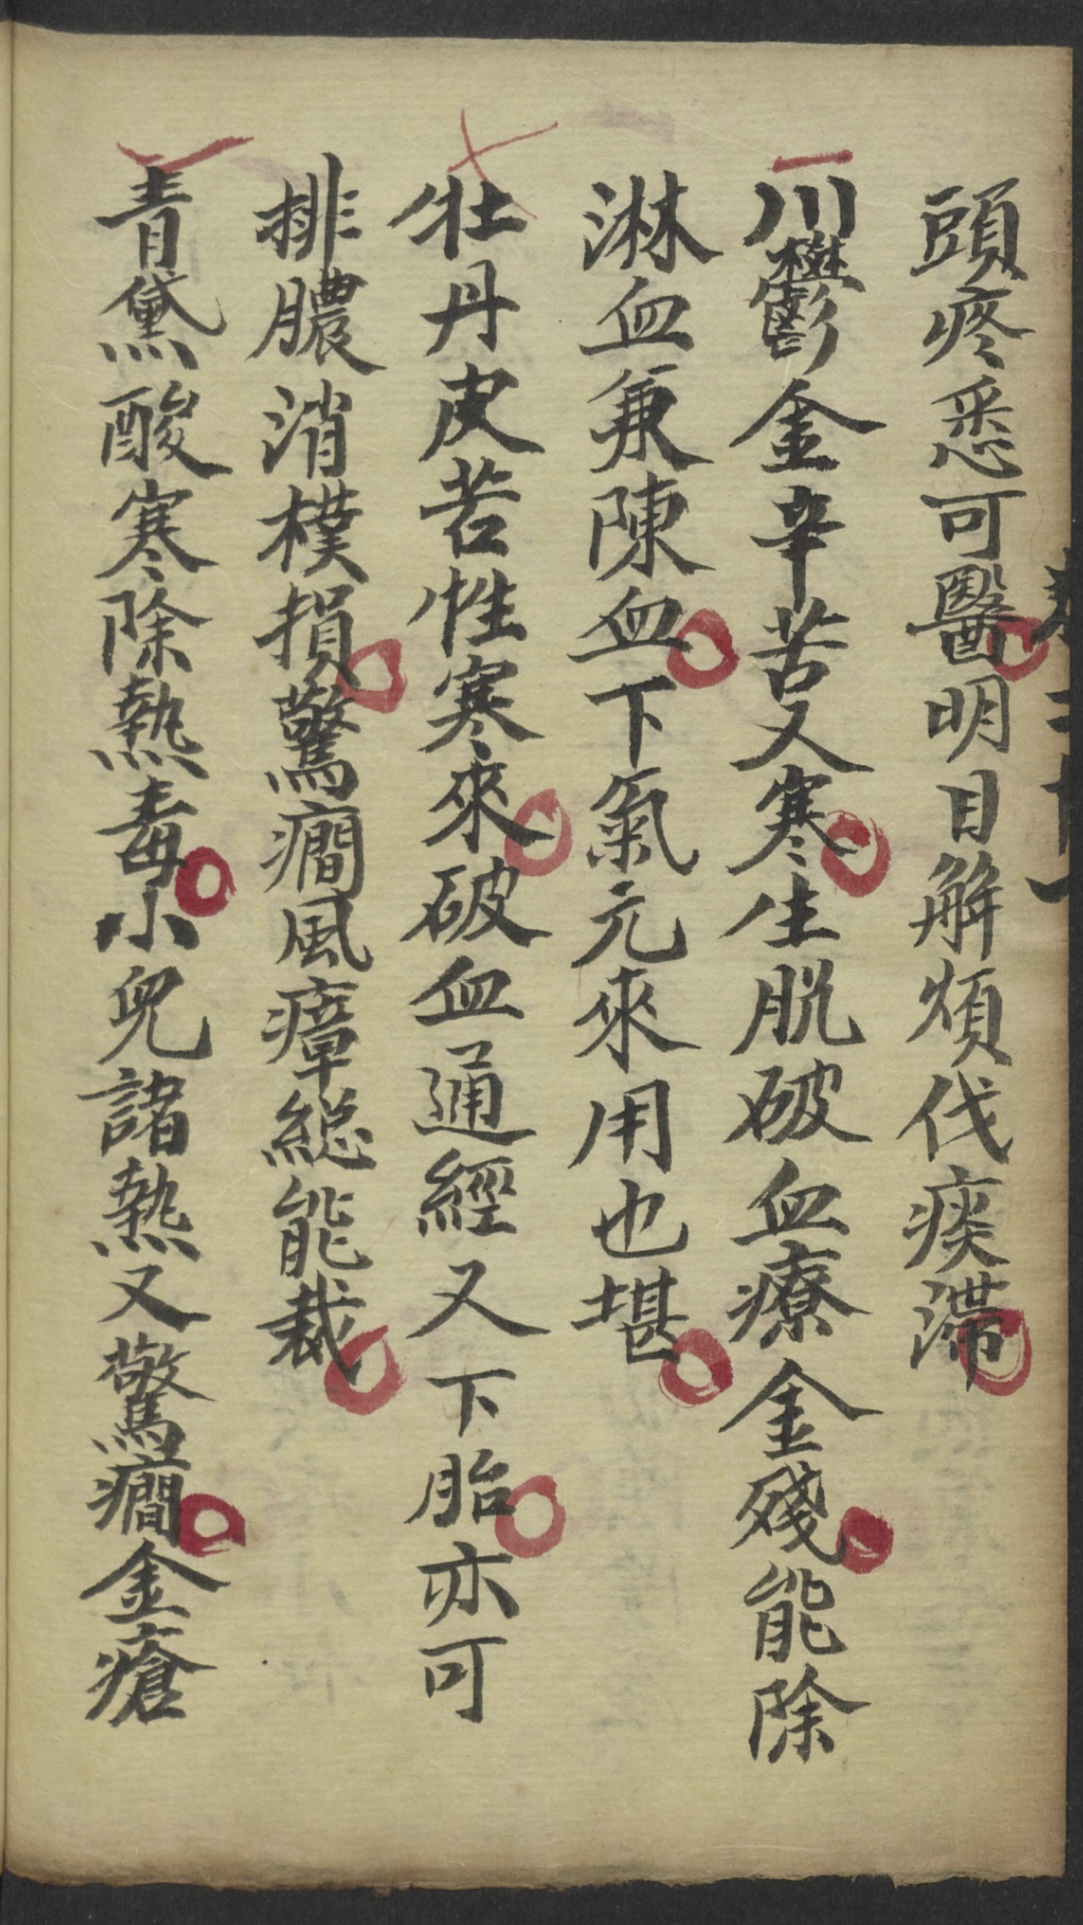 頭疼悉可醫明目解煩伐痰滯
川鬱金辛苦又寒生脫破血療金殘能除
淋血兼陳血下氣元來用也堪
牡丹皮苦性寒來破血通經又下胎亦可
排膿消樸損驚癇風瘴総能裁
青黛酸寒除熱毒小兒諸熱又驚癇金瘡